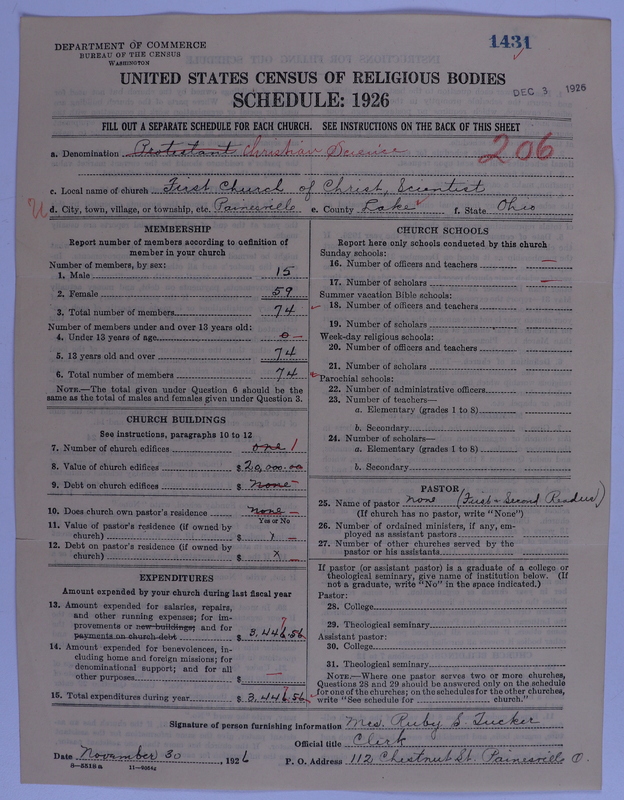 DEPARTMENT OF COMMERCE
BUREAU OF THE CENSUS
WASHINGTON
1431
UNITED STATES CENSUS OF RELIGIOUS BODIES
SCHEDULE: 1926
DEC 3 1926
FILL OUT A SEPARATE SCHEDULE FOR EACH CHURCH. SEE INSTRUCTIONS ON THE BACK OF THIS SHEET
a. Denomination Protestant Christian Science
206
c. Local name of church First Church of Christ, Scientist
d. City, town, village, or township, etc. Painesville e. County Lake f. State Ohio
MEMBERSHIP
Report number of members according to definition of
member in your church
Number of members, by sex:
1. Male 15
2. Female 59
3. Total number of members 74
Number of members under and over 13 years old:
4. Under 13 years of age 0 —
5. 13 years old and over 74
6. Total number of members 74
NOTE.—The total given under Question 6 should be
same as the total of males and females given under Question 3.
CHURCH BUILDINGS
See instructions, paragraphs 10 to 12
7. Number of church edifices one 1
8. Value of church edifices $20,000.00
9. Debt on church edifices $ None —
10. Does church own pastor's residence None —
Yes or No
11. Value of pastor's residence (if owned by
church) $ x —
12. Debt on pastor's residence (if owned by
church) $ x —
EXPENDITURES
Amount expended by your church during last fiscal year
13. Amount expended for salaries, repairs,
and other running expenses; for im-
provements or new buildings; and for
payments on church debt $ 3,446.56
7
14. Amount expended for benevolences, in-
cluding home and foreign missions; for
denominational support; and for all
other purposes $ —
15. Total expenditures during year $ 3,446.56
7
CHURCH SCHOOLS
Report here only schools conducted by this church
Sunday schools:
16. Number of officers and teachers —
17. Number of scholars —
Summer vacation Bible schools:
18. Number of officers and teachers
19. Number of scholars
Week-day religious schools:
20. Number of officers and teachers
21. Number of scholars
Parochial schools:
22. Number of administrative officers
23. Number of teachers—
a. Elementary (grades 1 to 8)
b. Secondary
24. Number of scholars—
a. Elementary (grades 1 to 8)
b. Secondary
PASTOR
25. Name of pastor none (First & Second Readers)
(If church has no pastor, write "None")
26. Number of ordained ministers, if any, em-
ployed as assistant pastors
27. Number of other churches served by the
pastor or his assistants
If pastor (or assistant pastor) is a graduate of a college or
theological seminary, give name of institution below. (If
not a graduate, write "No" in the space indicated.)
Pastor:
28. College
29. Theological seminary
Assistant pastor:
30. College
31. Theological seminary
NOTE.—Where one pastor serves two or more churches,
Questions 28 and 29 should be answered only on the schedule
for one of the churches; on the schedules for the other churches,
write "See schedule for church."
Signature of person furnishing information Mrs. Ruby S. Tucker
Official title Clerk
Date November 30, 1926 P. O. Address 112 Chestnut St. Painesville O.
8-5518a 11-9064z